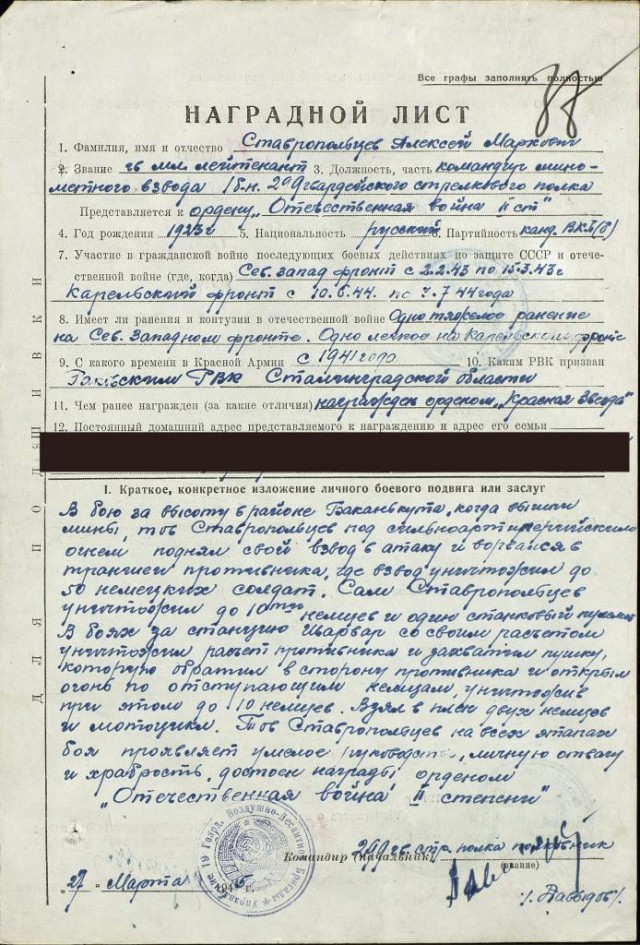 Все графы заполнять полностью
88
НАГРАДНОЙ ЛИСТ
1. Фамилия, имя и отчество Ставропольцев Алексей Маркович
2. Звание гв мл. лейтенант 3. Должность, часть командир мино-
метного взвода 1 б-н. 299 гвардейского стрелкового полка
Представляется к ордену „Отечественная война II ст"
4. Год рождения 1923г 5. Национальность русский 6. Партийность канд. ВКП(б)
7. Участие в гражданской войне последующих боевых действиях по защите СССР и отече-
ственной войне (где, когда) Сев. Запад фронт с 2.2.43 по 15.3.43г
Карельский фронт с 10.6.44. по 7.7 44 года
8. Имеет ли ранения и контузии в отечественной войне Одно тяжелое ранение
на Сев. Западном фронте. Одно легкое на Карельском фронте
9. С какого времени в Красной Армии с 1941 года 10. Каким РВК призван
РВК Сталинградской области
11. Чем ранее награжден (за какие отличия) награжден орденом „Красная Звезда"
12. Постоянный домашний адрес представляемого к награждению и адрес его семьи
I. Краткое, конкретное изложение личного боевого подвига или заслуг
В бою за высоту в районе Баканькута, когда вышли
мины, тов Ставропольцев под сильно артиллерийским
огнем поднял свой взвод в атаку и ворвался в
траншеи противника, где взвод уничтожил до
50 немецких солдат. Сам Ставропольцев
уничтожил до 10ти немцев и один станковый пулемет
В боях за станцию Шарвар со своим расчетом
уничтожил расчет противника и захватил пушку,
которую обратил в сторону противника и открыл
огонь по отступающим немцам, уничтожив
при этом до 10 немцев. Взял в плен двух немцев
и мотоцикл. Тов Ставропольцев на всех этапах
боя проявляет умелое руководство, личную отвагу
и храбрость, достоен награды орденом
„Отечественная война II степени"
Командир (начальник) 299 гв. стр. полка полковник
(звание)
27 Марта 1945 г.
/. Давыдов/.
Управление 19 Гвард. Воздушно-Десантной Бригады
ДЛЯ ПОДШИВКИ